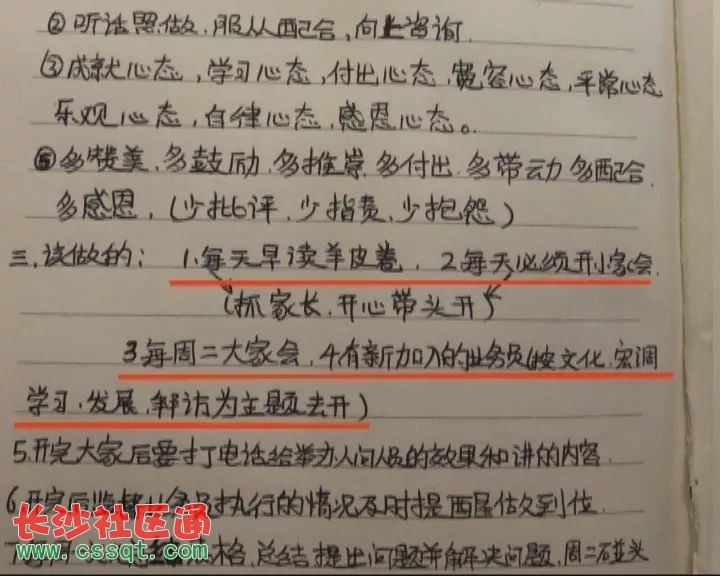 ②听话照做.服从配合,向上咨询.
③成就心态,学习心态,付出心态,宽容心态,平常心态
乐观心态,自律心态,感恩心态。
⑤多赞美.多鼓励.多推崇.多付出.多带动多配合.
多感恩,(少批评.少指责.少抱怨)
三.该做的: 1.每天早读羊皮卷, 2.每天必须开小家会.
(抓家长,开心带头开)
3每周二大家会,4有新加入的业务员(按文化.宏调
学习.发展,解访为主题去开)
5.开完大家后要打电话给举办人问人员的效果和讲的内容.
6.开完后监督业务员执行的情况及时提 做到位.
格,总结提出问题并解决问题,周二碰头
长沙社区通
www.cssqt.com